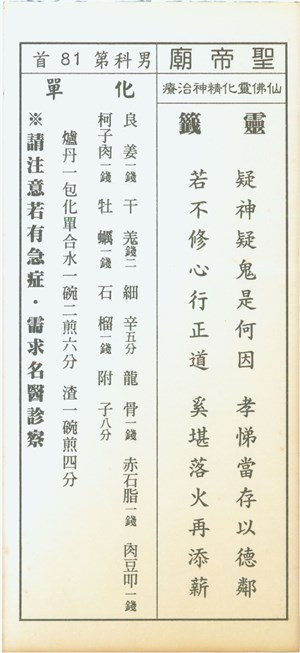 聖帝廟
仙佛靈化精神治療
靈籤
疑神疑鬼是何因 孝悌當存以德鄰
若不修心行正道 奚堪落火再添薪
男科第 81 首
化單
良姜一錢 干羗錢二 細辛五分 龍骨一錢 赤石脂一錢 肉豆叩一錢
柯子肉一錢 牡蠣一錢 石榴一錢 附子八分
爐丹一包化單合水一碗二煎六分 渣一碗煎四分
※請注意若有急症・需求名醫診察